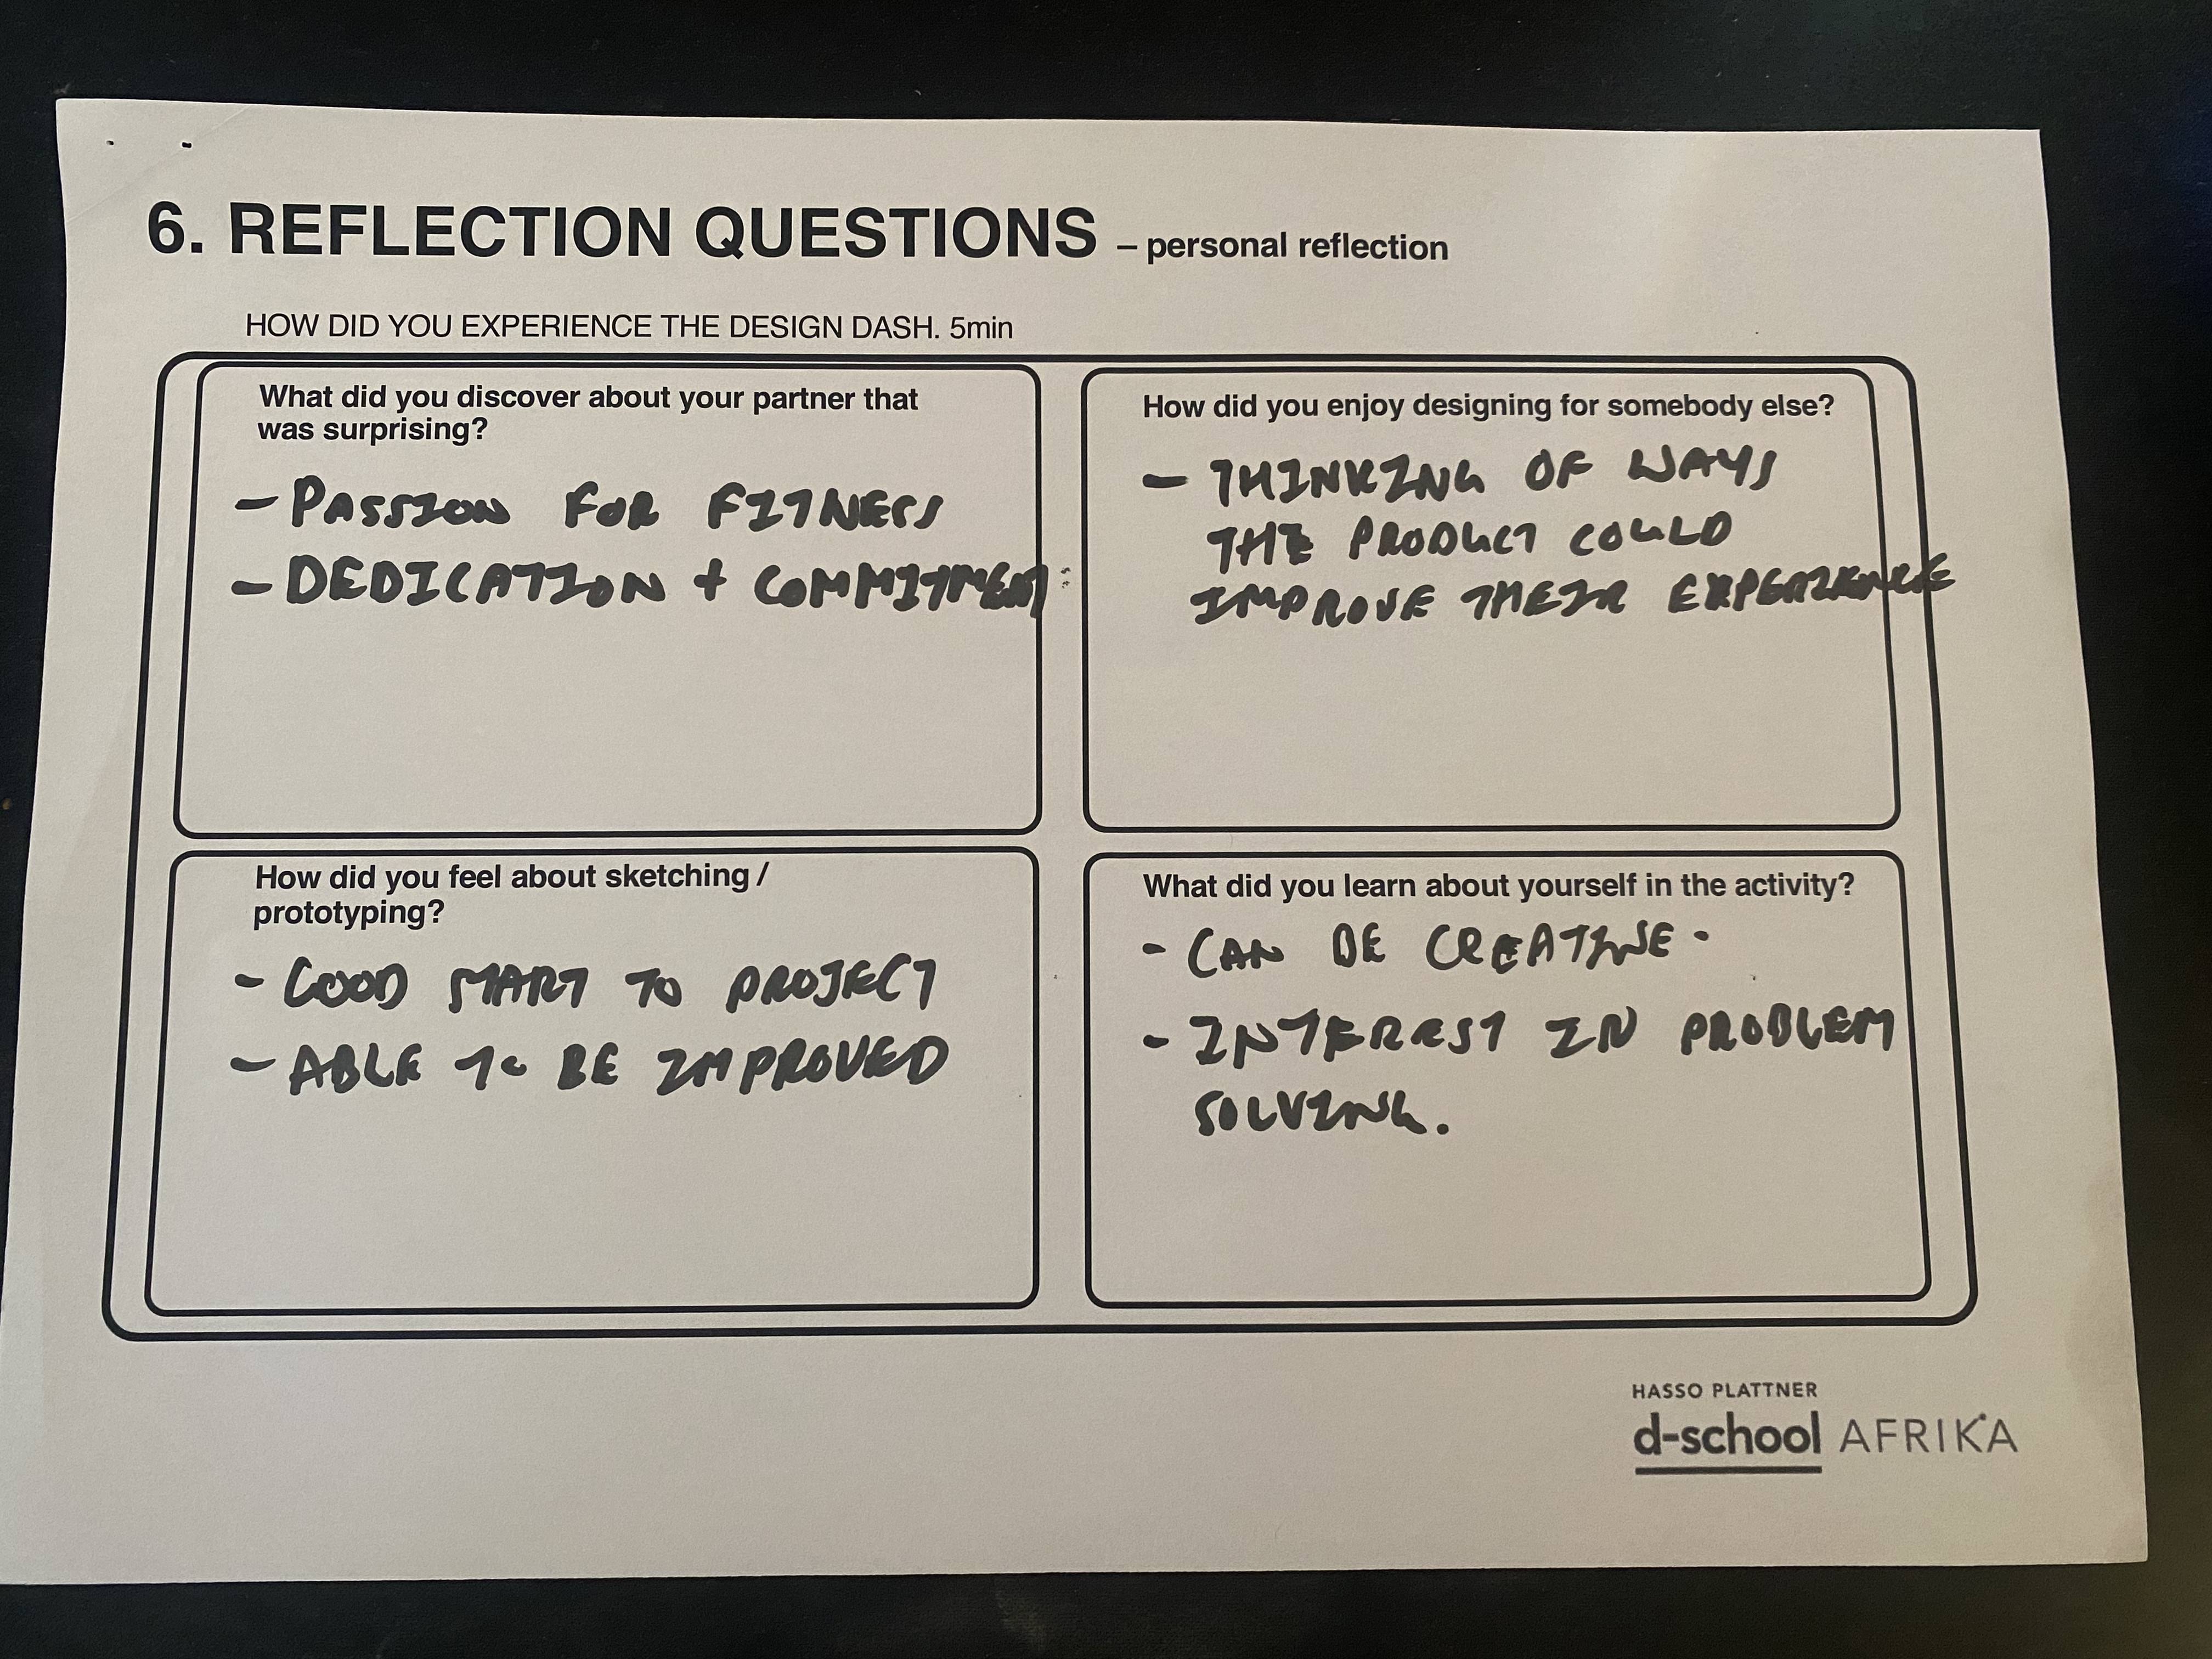 6. REFLECTION QUESTIONS – personal reflection
HOW DID YOU EXPERIENCE THE DESIGN DASH. 5min
What did you discover about your partner that
was surprising?
- PASSION FOR FITNESS
- DEDICATION + COMMITMENT
How did you enjoy designing for somebody else?
- THINKING OF WAYS
THE PRODUCT COULD
IMPROVE THEIR EXPERIENCE
How did you feel about sketching /
prototyping?
- GOOD START TO PROJECT
- ABLE TO BE IMPROVED
What did you learn about yourself in the activity?
- CAN BE CREATIVE.
- INTEREST IN PROBLEM
SOLVING.
HASSO PLATTNER
d-school AFRIKA